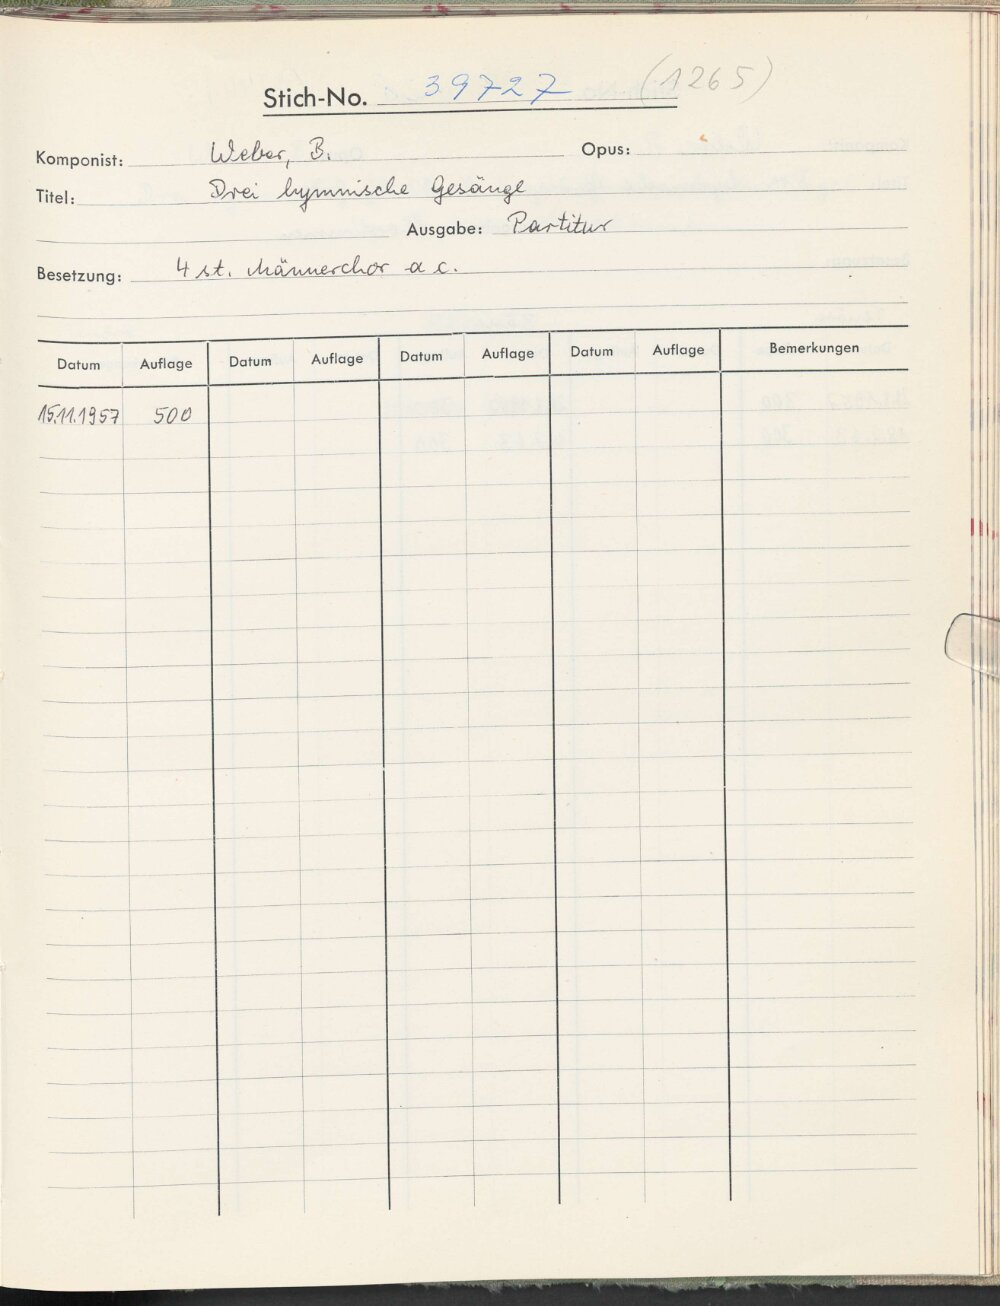 Stich-No. 39727 (1265)
Komponist: Weber, B. Opus:
Titel: Drei hymnische Gesänge
Ausgabe: Partitur
Besetzung: 4 st. Männerchor a c.
Datum Auflage Datum Auflage Datum Auflage Datum Auflage Bemerkungen
15.11.1957 500